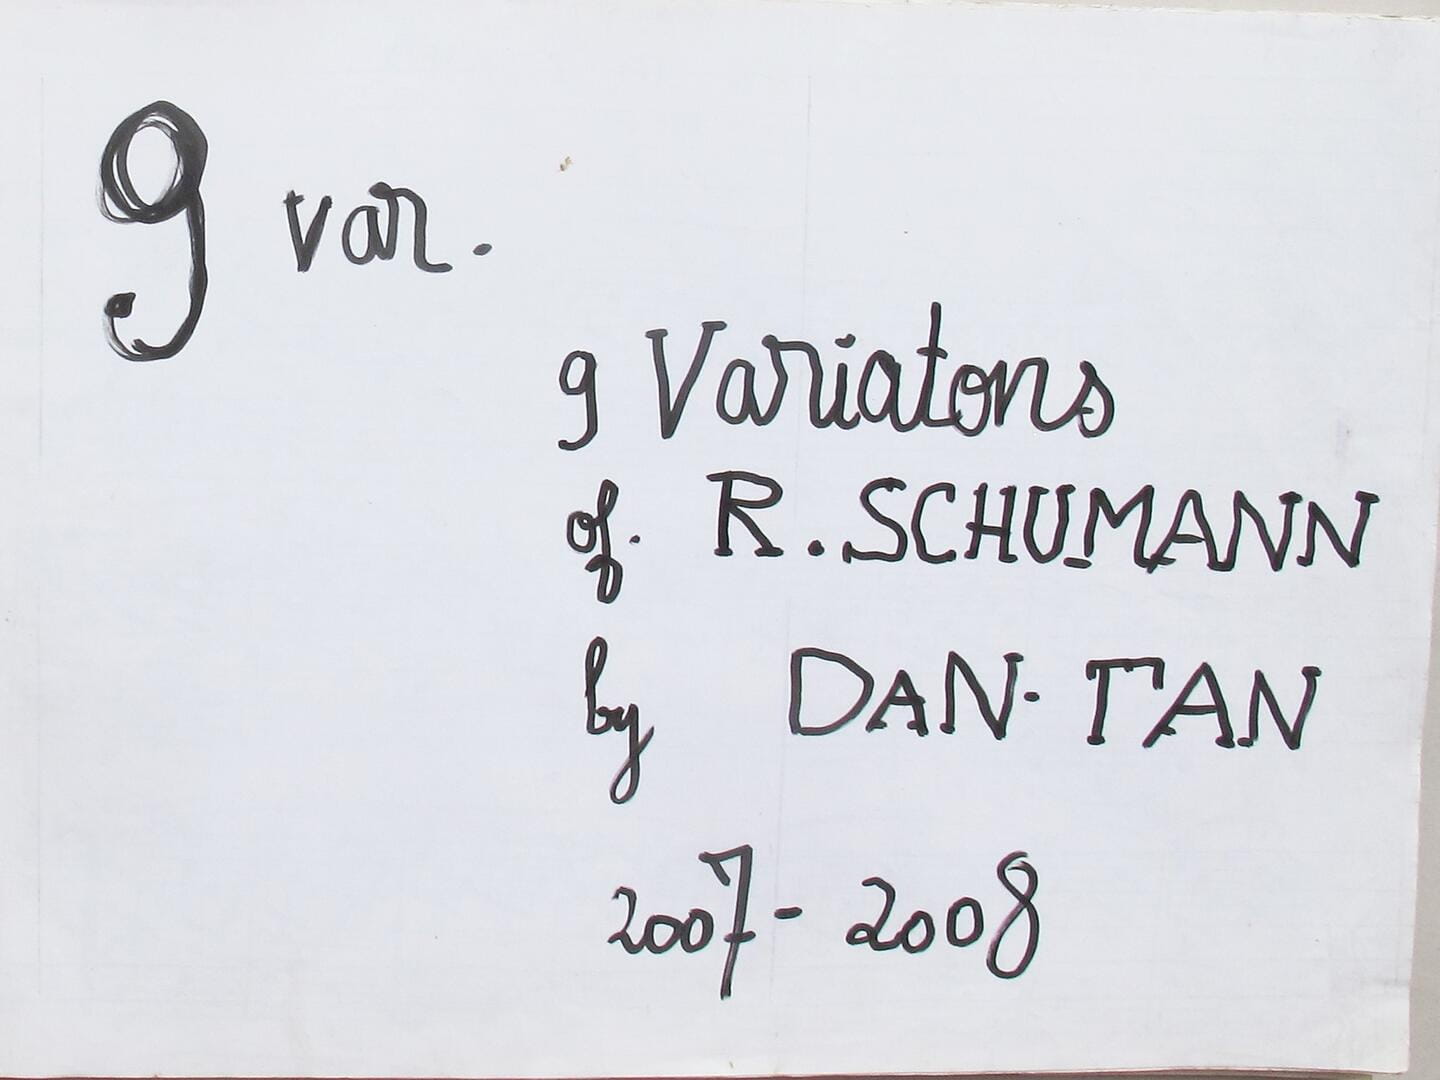 9 var.
9 Variatons
of. R. SCHUMANN
by DAN. TAN
2007 - 2008